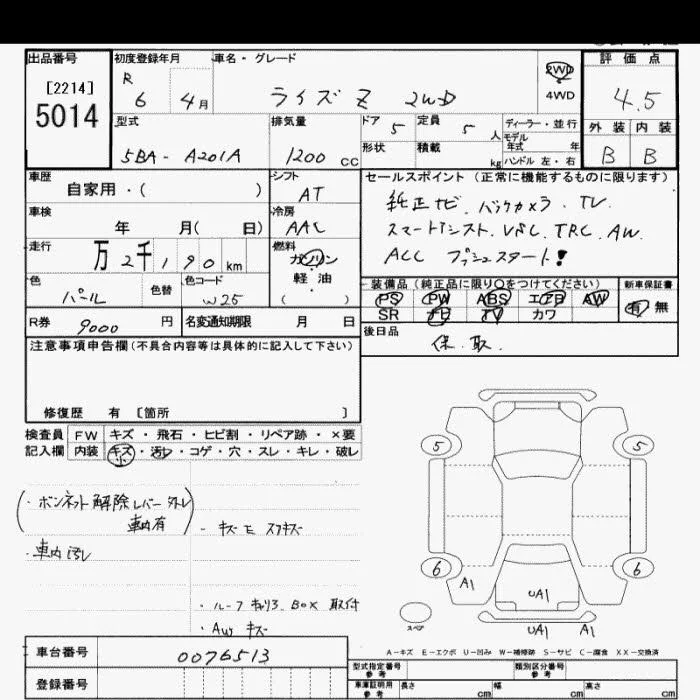 出品番号
[2214]
5014
初度登録年月
R 6 4月
車名・グレード
ライズ Z 2WD
2WD
4WD
評価点
4.5
外装 内装
B B
型式
5BA - A201A
排気量
1200 CC
ドア 5
定員 5 人
形状
積載 kg
ディーラー・並行
モデル
年式 年
ハンドル 左・右
車歴
自家用・( )
シフト
AT
車検
年 月( 日)
冷房
AAC
走行
万 2千190km
燃料
ガソリン
・
軽油
( )
色
パール
色替
色コード
W25
セールスポイント (正常に機能するものに限ります)
純正ナビ. バックカメラ. TV
スマートアシスト. VSC. TRC. AW
ACC プッシュスタート!
装備品(純正品に限り○をつけてください)
PS PW ABS エアB AW
SR ナビ TV カワ
新車保証書
有 無
R券 9000 円
名変通知期限 月 日
後日品
保. 取.
注意事項申告欄(不具合内容等は具体的に記入して下さい)
修復歴 有 [箇所 ]
検査員 FW キズ・飛石・ヒビ割・リペア跡・×要
記入欄 内装 キズ・汚レ・コゲ・穴・スレ・キレ・破レ
小
(・ボンネット解除レバー外レ
車内有)
・車内汚レ
・キズE スリキズ
・ルーフキャリア. BOX 取付
・AW キズ
5 5
6 6
A1
UA1
UA1 A1
スペア
A-キズ E-エクボ U-凹み W-補修跡 S-サビ C-腐食 XX-交換済
車台番号
0076513
登録番号
型式指定番号
参考
類別区分番号
参考
車庫証明用
参考
長さ cm 幅 cm 高さ cm